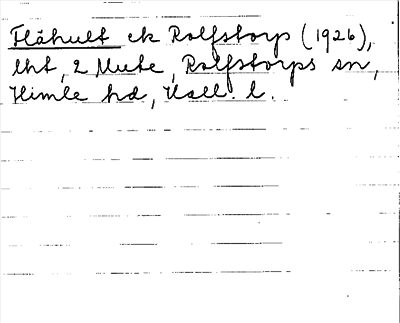 Flähult ek Rolfstorp (1926),
lht, 2 Mute, Rolfstorps sn,
Himle hd, Hall. l.